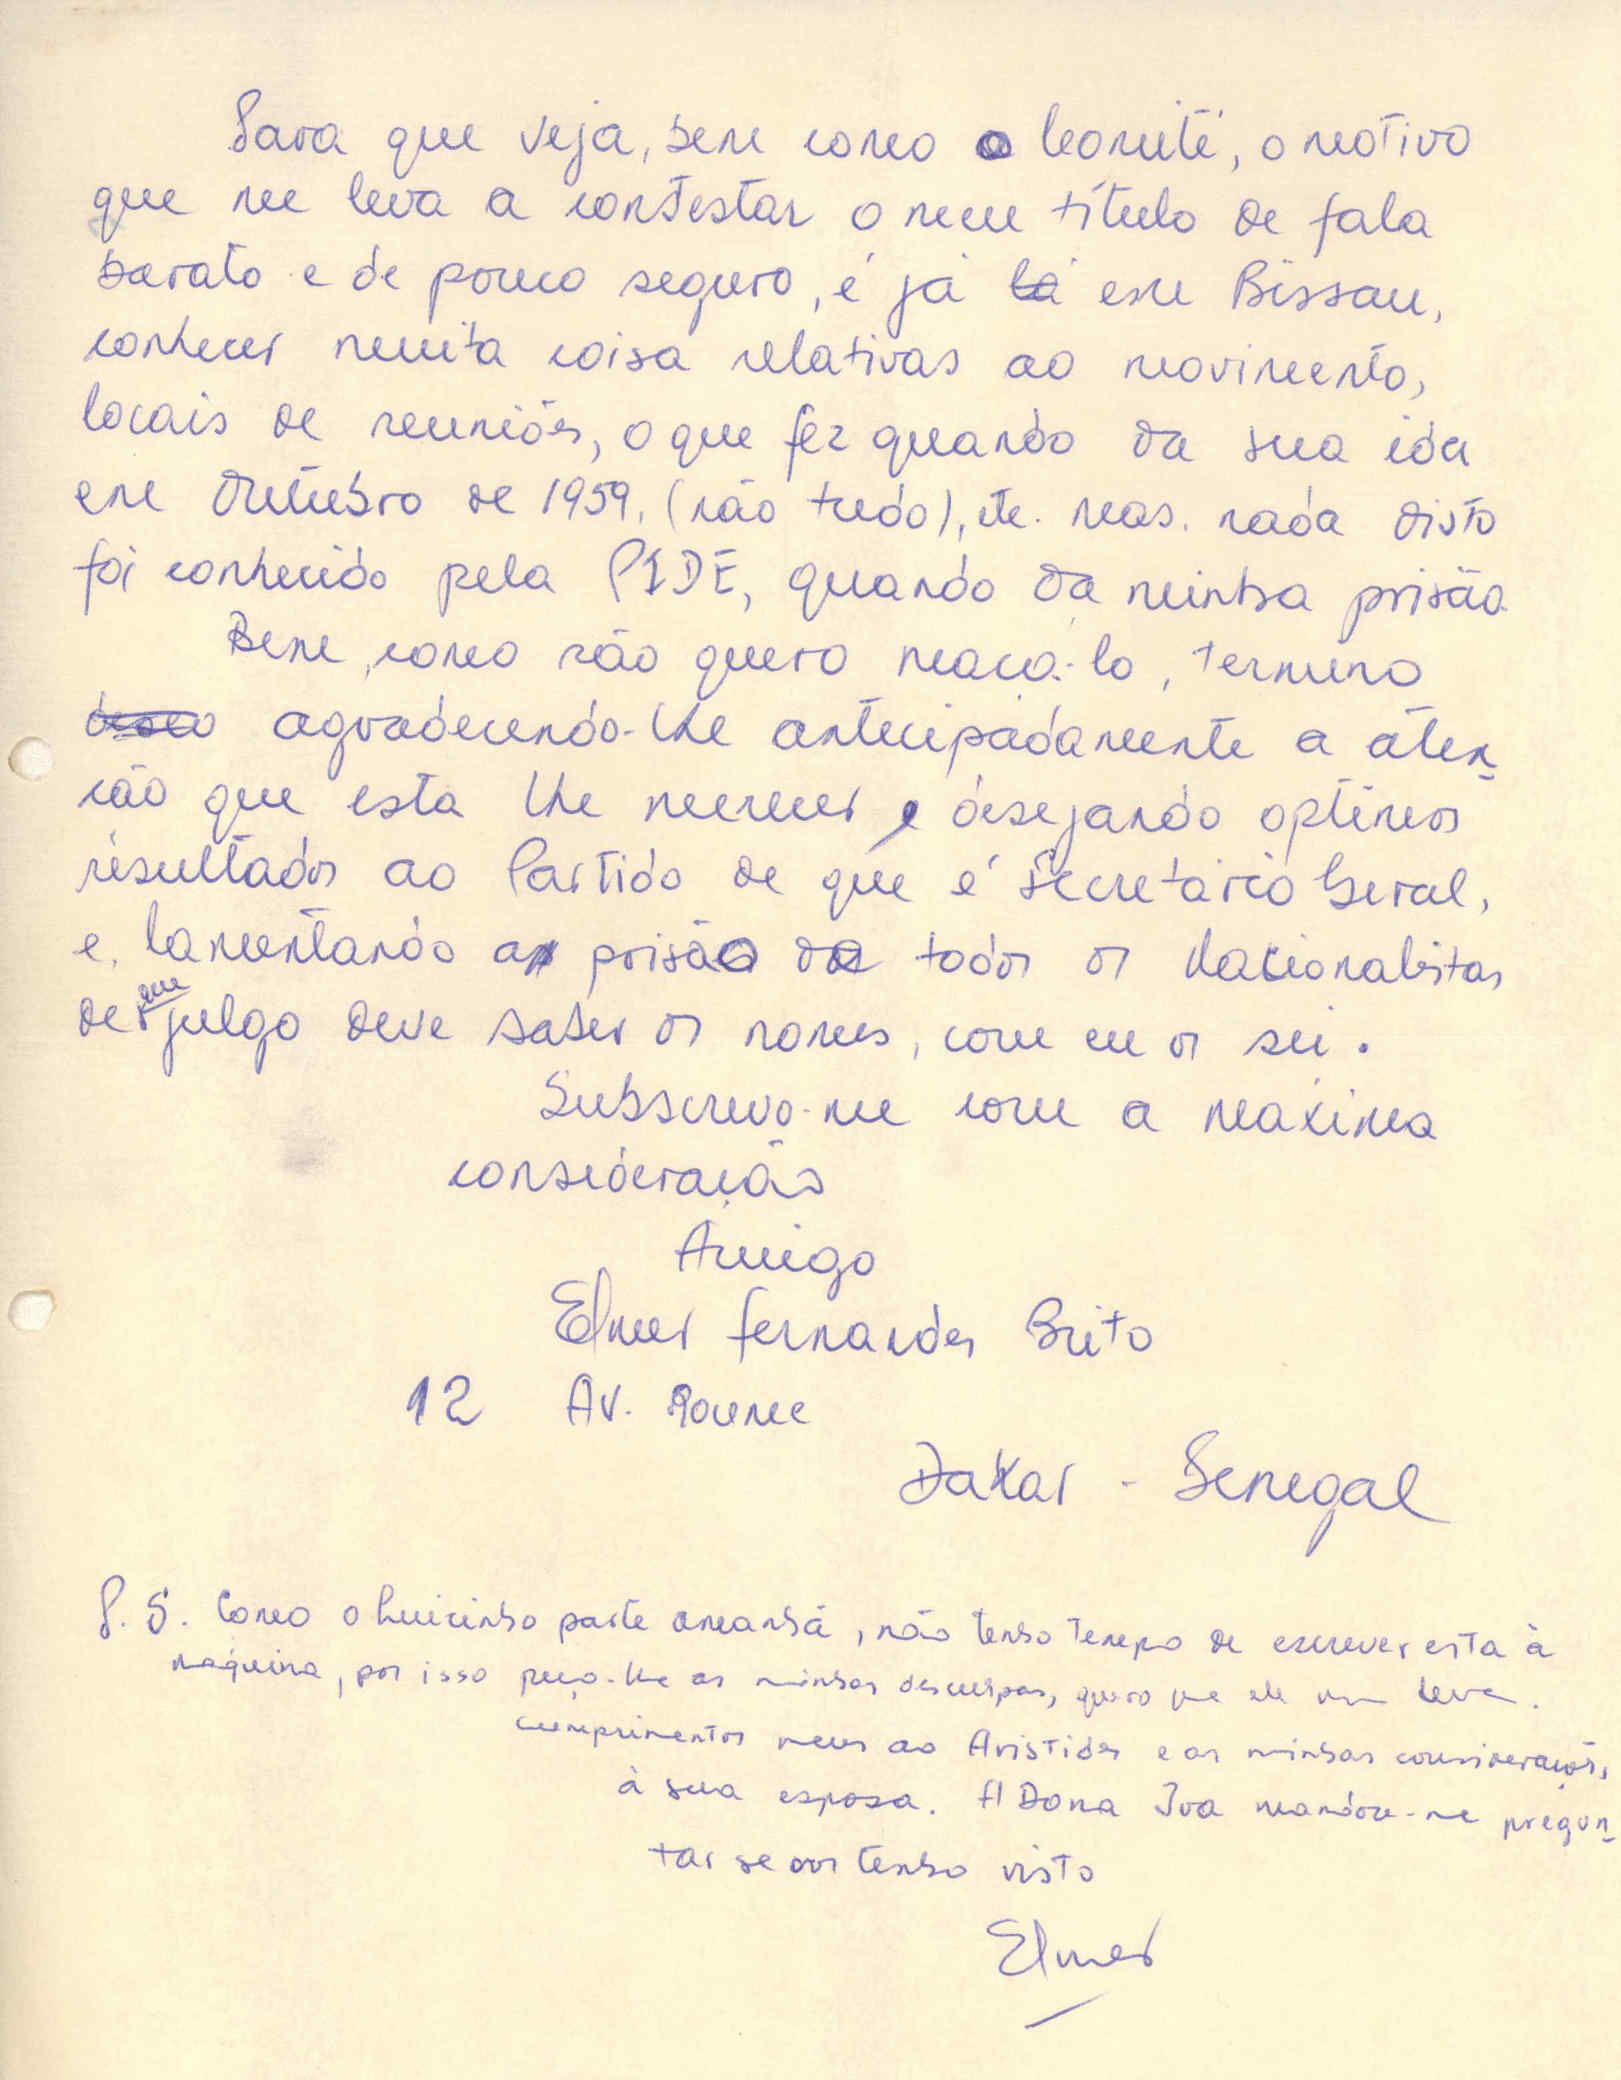 Para que veja, bem como o Comité, o motivo
que me leva a contestar o meu título de fala
barato e de pouco seguro, é já lá em Bissau,
conhecer muita coisa relativas ao movimento,
locais de reuniões, o que fez quando da sua ida
em Outubro de 1959, (não tudo), etc. mas. nada disto
foi conhecido pela PIDE, quando da minha prisão
Bem, como não quero maça-lo, termino
agradecendo-lhe antecipadamente a aten-
ção que esta lhe merecer e desejando optimos
resultados ao Partido de que é Secretário Geral,
e, lamentando a prisão de todos os Nacionalistas
de que julgo deve saber os nomes, com eu os sei.
Subscrevo-me com a maxima
consideração
Amigo
Elmer Fernandes Brito
12 Av. Roume
Dakar - Senegal
P. S. Como o Luizinho parte amanhã, não tenho tempo de escrever esta à
maquina, por isso peço-lhe as minhas desculpas, quero que ele leve.
cumprimentos meus ao Aristides e as minhas considerações,
à sua esposa. A Dona Iva mandou-me pregun-
tar se os tenho visto
Elmer